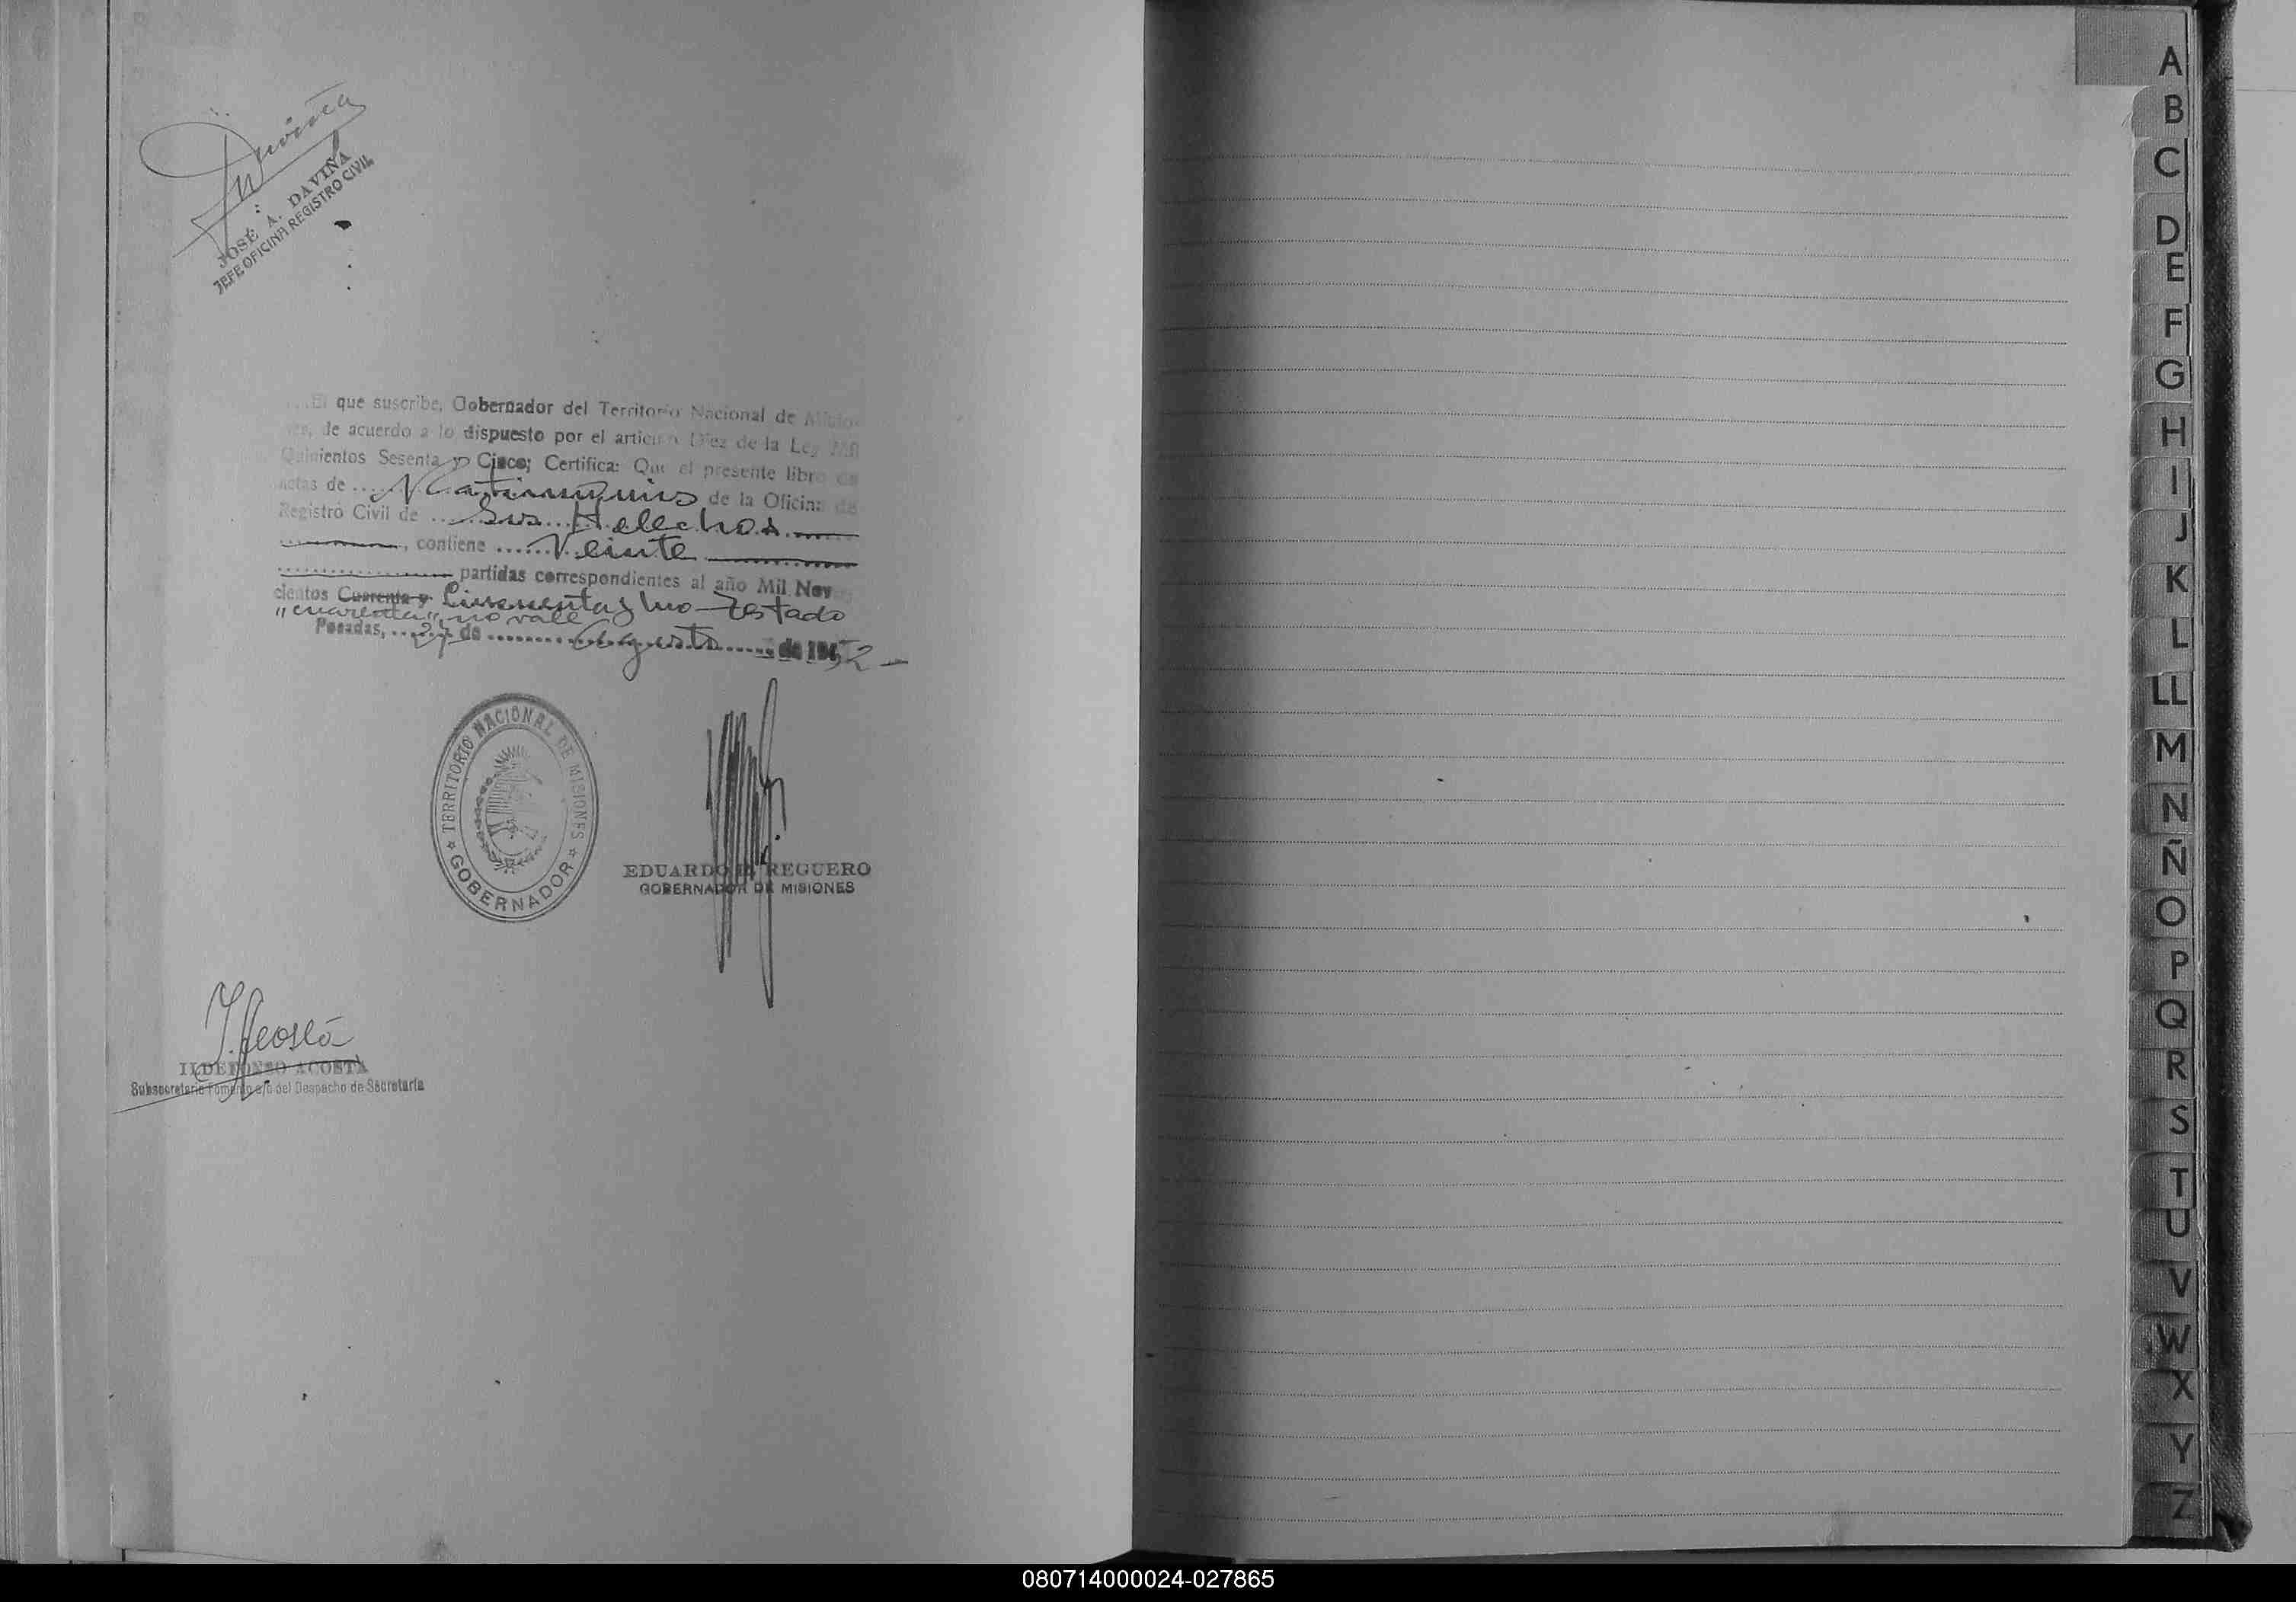 Daviña
JOSÉ A. DAVIÑA
JEFE OFICINA REGISTRO CIVIL
El que suscribe, Gobernador del Territorio Nacional de Misio-
nes, de acuerdo a lo dispuesto por el artículo Diez de la Ley Mil
Quinientos Sesenta y Cinco; Certifica: Que el presente libro de
actas de Matrimonios de la Oficina de
Registro Civil de Los Helechos
, contiene Veinte
partidas correspondientes al año Mil Nove
cientos Cuarenta y Cincuenta y uno - Testado
"cuarenta", no vale
Posadas, 27 de Agosto de 1952 -
TERRITORIO NACIONAL DE MISIONES
GOBERNADOR
EDUARDO REGUERO
GOBERNADOR DE MISIONES
I. Acosta
ILDEFONSO ACOSTA
Subsecretario Fomento a/c del Despacho de Secretaría
A
B
C
D
E
F
G
H
I
J
K
L
LL
M
N
Ñ
O
P
Q
R
S
T
U
V
W
X
Y
Z
080714000024-027865